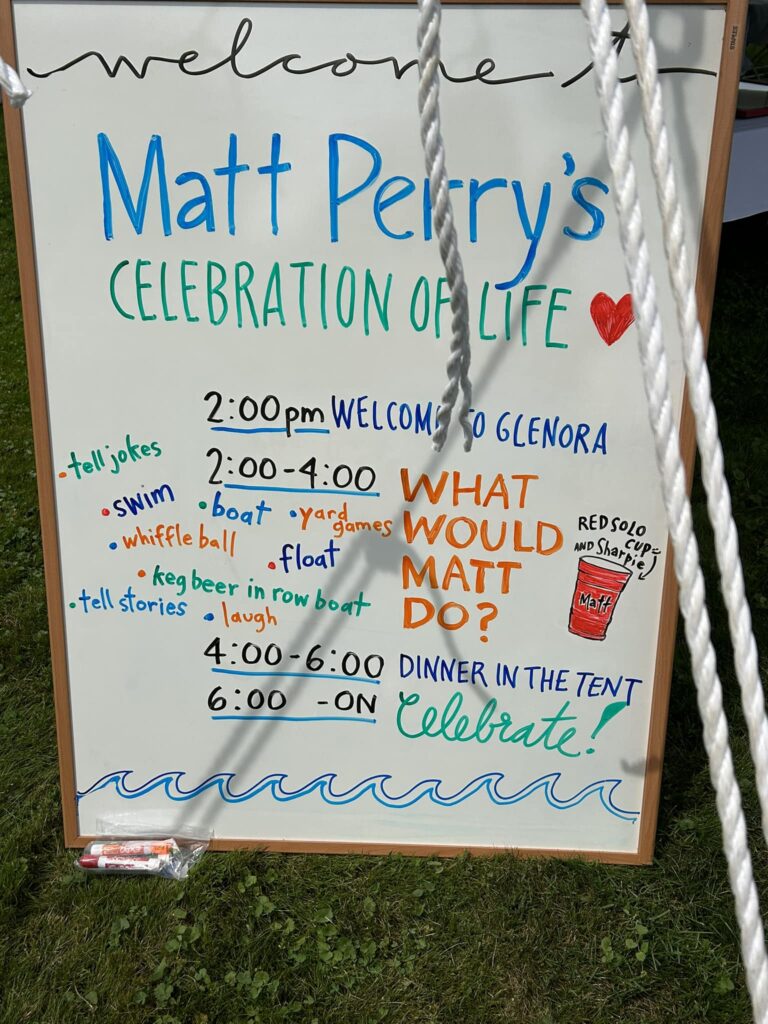 welcome t
Matt Perry's
CELEBRATION OF LIFE
2:00pm WELCOME TO GLENORA
2:00-4:00 WHAT WOULD MATT DO?
• tell jokes
• swim • boat • yard games
• whiffle ball • float
• keg beer in row boat
• tell stories • laugh
RED SOLO
CUP
AND Sharpie
Matt
4:00-6:00 DINNER IN THE TENT
6:00 -ON Celebrate!
STAPLES